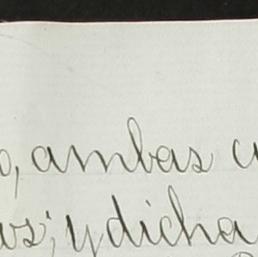 o, ambas
os; y dicha